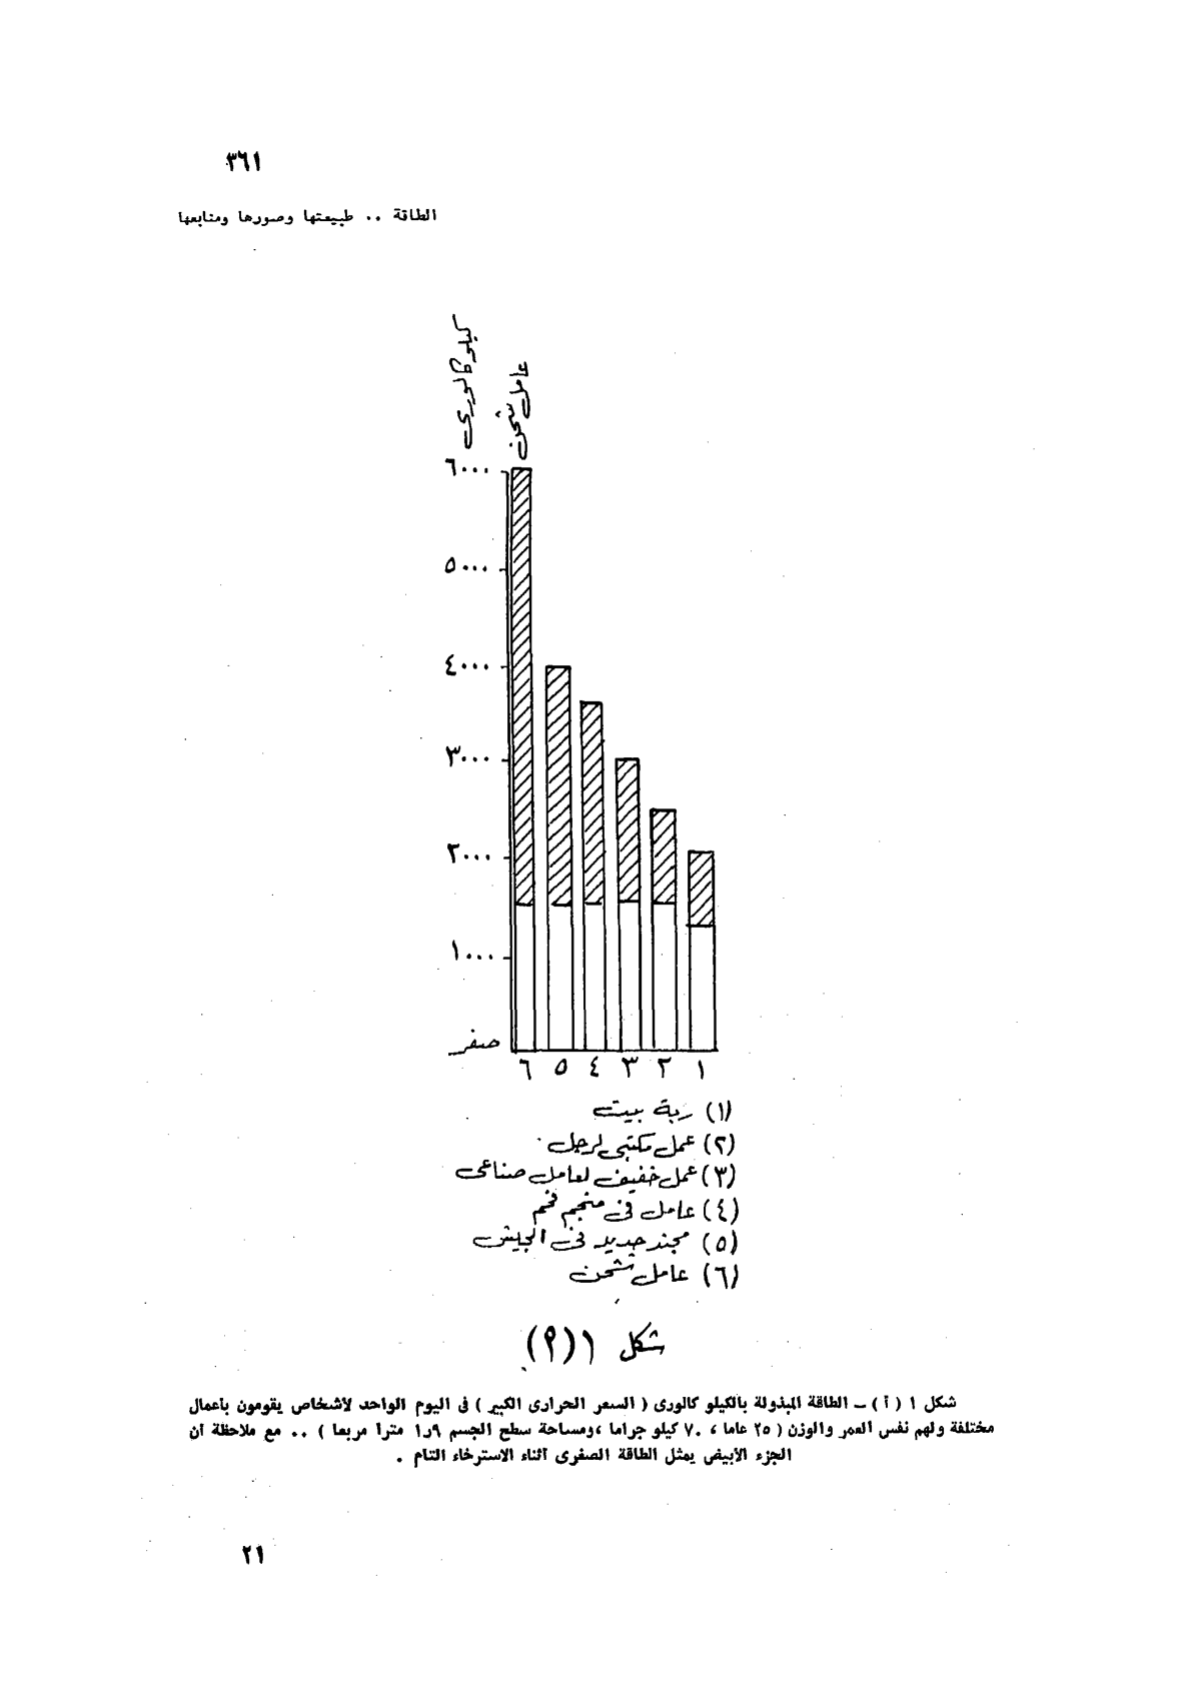 ٣٦١
الطاقة .. طبيعتها وصورها ومنابعها
كيلو كالورى
عامل شحن
٦٠٠٠
٥٠٠٠
٤٠٠٠
٣٠٠٠
٢٠٠٠
١٠٠٠
صفر
١ ٢ ٣ ٤ ٥ ٦
(١) ربة بيت
(٢) عمل مكتبى لرجل
(٣) عمل خفيف لعامل صناعى
(٤) عامل فى منجم فحم
(٥) مجند جديد فى الجيش
(٦) عامل شحن
شكل ١ (أ)
شكل ١ ( أ ) – الطاقة المبذولة بالكيلو كالورى ( السعر الحرارى الكبير ) فى اليوم الواحد لأشخاص يقومون بأعمال
مختلفة ولهم نفس العمر والوزن ( ٢٥ عاما ، ٧٠ كيلو جراما ، ومساحة سطح الجسم ٩ر١ مترا مربعا ) .. مع ملاحظة أن
الجزء الأبيض يمثل الطاقة الصغرى أثناء الاسترخاء التام .
٢١